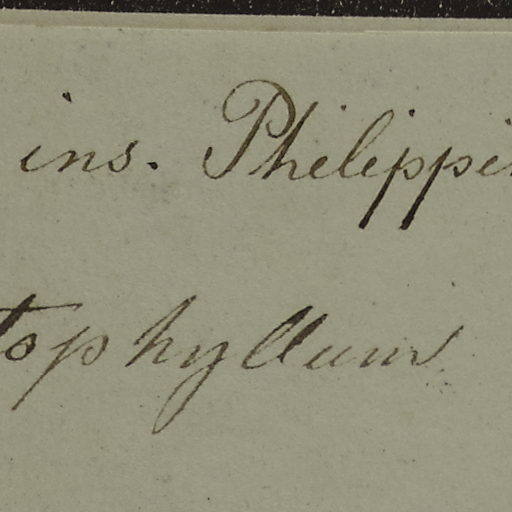 ins. Philippi
tophyllum